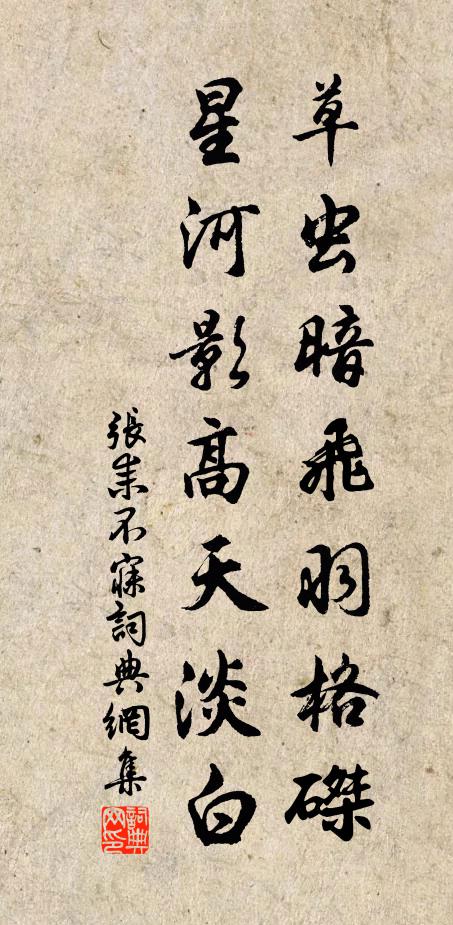 草虫暗飛羽格磔
星河影高天淡白
張耒不寐詞典網集
詞典網印